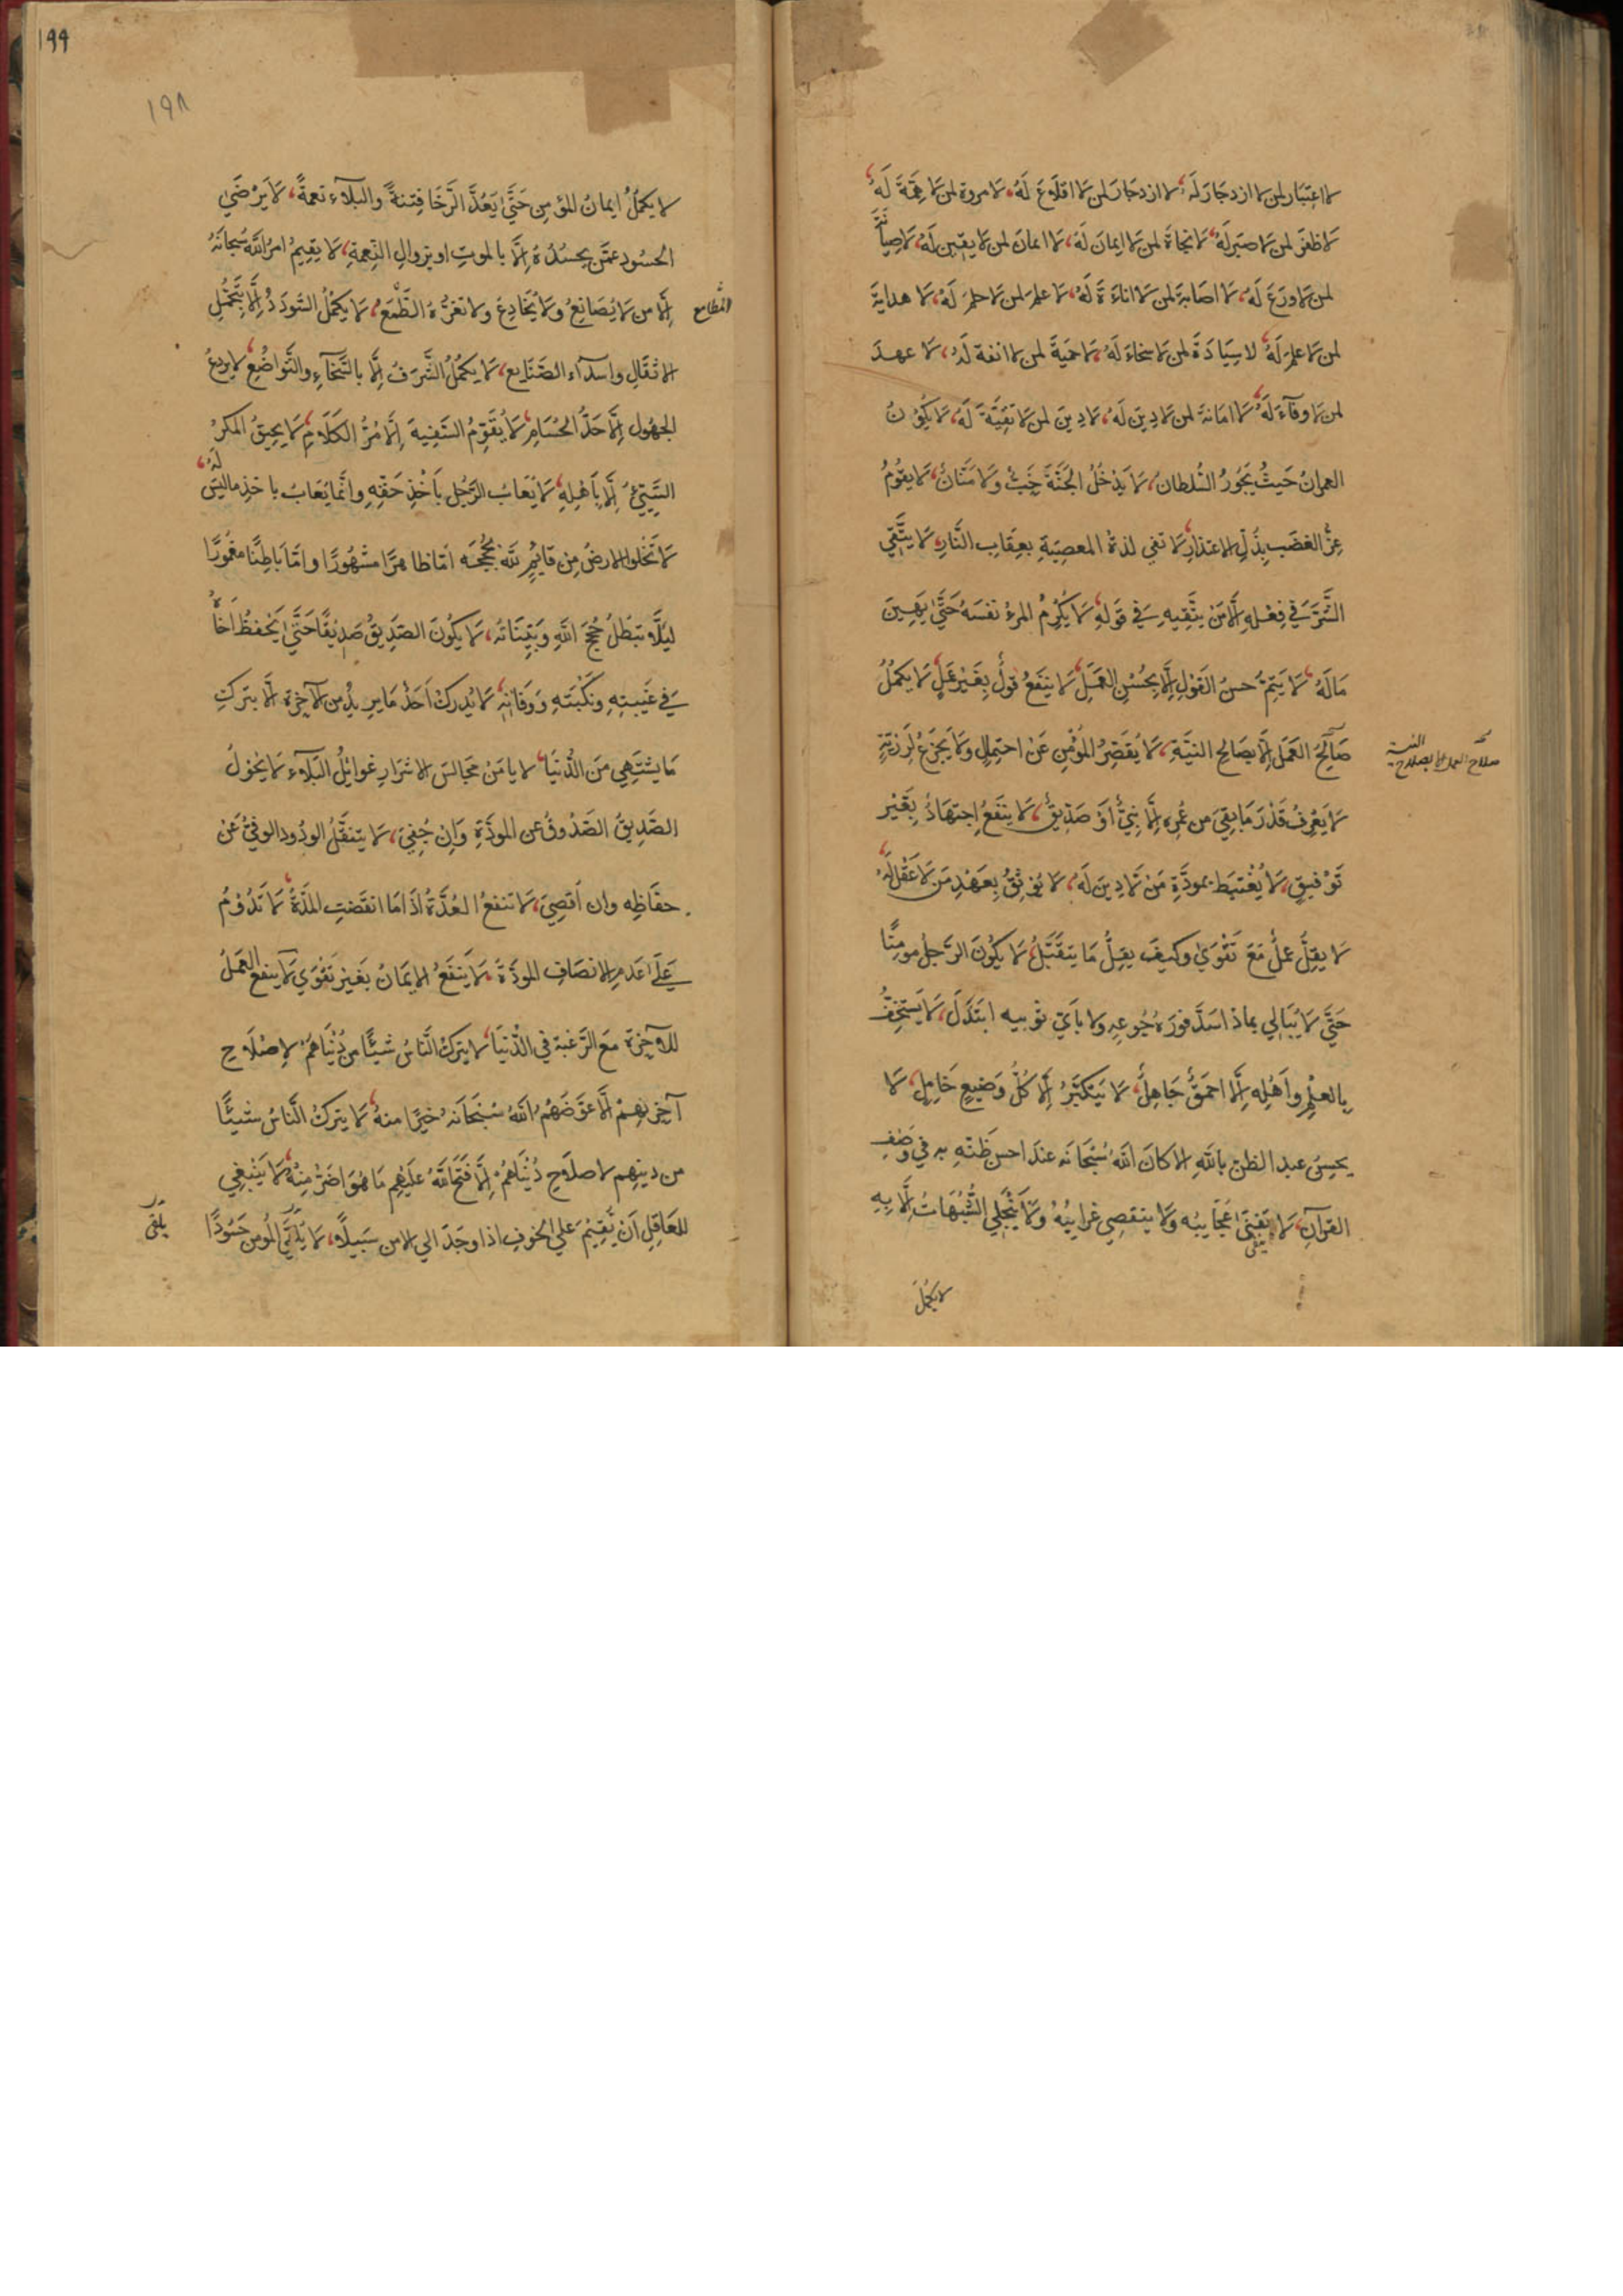 لا اعتبار لمن لا ازدجار له، لا ازدجار لمن لا اقلاع له، لا مروة لمن لا همّة لَهُ،
لا ظفَر لمن لا صبر لَهُ، لا نجاةَ لمن لا ايمانَ لَهُ، لا ايمانَ لمن لا يقين لَهُ، لا صيانَة
لمن لا ورَعَ لَهُ، لا اصابةَ لمن لا اناءَةَ لَهُ، لا علمَ لمن لا حلمَ لَهُ، لا هدايةَ
لمن لا علمَ لَهُ، لا سِيَادَةَ لمن لا سخاءَ لَهُ، لا حميَةَ لمن لا انفة لَهُ، لا عهدَ
لمن لا وفآءَ لَهُ، لا امَانةَ لمن لا دِينَ لَهُ، لا دِينَ لمن لا تقيَّةَ لَهُ، لا يكُونُ
العمرانُ حَيثُ يَجُورُ السُّلطانُ، لا يَدْخُلُ الجَنَّةَ خَِبٌّ وَلا مَنَّانٌ، لا يقومُ
عِزُّ الغضَب بِذُلِّ الاعتذارِ، لا تفي لذة المعصِيَةِ بعِقَابِ النَّارِ، لا يتَّقِي
الشَّرَّ في فِعْلِهِ إلَّا مَنْ يتَّقِيهِ في قَولِهِ، لا يُكرِمُ المرءُ نفسَهُ حَتَّى يَهِينَ
مَالَهُ، لا يَتِمُّ حسنُ القَولِ إلَّا بِحُسْنِ العَمَلِ، لا ينفَعُ قولٌ بِغَيْرِ عَمَلٍ، لا يكمُلُ
صَالحُ العَمَل إلَّا بِصَالحِ النيَّةِ، لا يُقصِّرُ المُؤْمِن عَنْ احتِمالٍ وَلا يَجزَعُ لِرَزِيّةٍ
صلاح العمل الا بصلاح النية
لا يَعْرِفُ قَدْرَ مَا بقِيَ من عُمرِه إلَّا نبيٌّ أَوْ صِدِّيقٌ، لا ينفَعُ اجتِهَادٌ بِغَيْرِ
تَوْفيقٍ، لا يُغْتَبَط بمودَّةِ مَنْ لا دِينَ لَهُ، لا يُوثِقُ بِعَهْدِ مَن لا عَقْلَ لَهُ،
لا يقِلُّ عملٌ مَعَ تَقْوَىٰ وكيفَ يقِلُّ مَا يتقَبَّلُ، لا يكُونَ الرَّجلُ مومِنًا
حَتَّي لا يُبَالي بماذا سَدَّ فورَةَ جُوعِهِ ولا بأيّ ثوبيه ابتَذَلَ، لا يَستخِفُّ
بِالعِلْمِ وأَهْلِه إلَّا احمَقٌ جَاهِلٌ، لا يَتَكبَّرُ إلَّا كُلُّ وَضِيعٍ خَامِلٍ، لا
يحسِنُ عبد الظن باللهِ الا كانَ اللهُ سُبْحَانَه عندَ احسَنِ ظَنّهِ به في وَصْفِ
القرآنِ، لا تَفْنَى عَجَايبُه وَلا ينقضِي غرايبُهُ وَلا يَنْجَلي الشُّبُهَاتُ إلَّا بِهِ
لا يكمل
١٩٩
١٩٨
لا يكمُلُ ايمانُ المؤمِنِ حَتَّى يَعُدَّ الرَّخَا فِتنةً والبَلآءَ نعمةً، لا يَرْضَىٰ
الحسُود عمَّن يحسُدُهُ إلَّا بالموتِ او بزوالِ النِّعمةِ، لا يقِيمُ امرُ اللهِ سُبحانَهُ
إلَّا من لا يُصَانِعُ وَلا يُخَادِعُ ولا تَغُرُّهُ الطَّمَعُ، لا يَكمُلُ السَّودَدُ إلَّا بتَحَمُّلِ
المطامع
الاثقَالِ واسدآء الصَّنَايع، لا يكمُلُ الشَّرَفُ إلَّا بالسَّخَآءِ والتَّواضُعِ، لا يردعُ
الجهُولَ إلَّا حَدُّ الحُسَامِ، لا يُقوِّمُ السَّفِيهَ إلَّا مُرُّ الكَلَامِ، لا يحيقُ المكرُ
السَّيّئُ إلَّا بأَهلِهِ، لا يُعَابُ الرَّجُل بأخْذِ حَقّهِ وانَّما يُعَابُ باخذِ ما ليسَ لَهُ،
لا تَخلوا الارضُ مِن قايمٍ للهِ بحُجَجِه امّا ظاهرًا مشْهُورًا وامَّا باطِنًا مغمُورًا
ليَلَّا تبطُلُ حُجَجَ اللهِ وَبيّنَاتهُ، لا يكُونَ الصَّدِيقُ صَدِيقًا حَتَّى يَحْفظُ أَخَاهُ
في غَيبتِهِ ونَكْبتِهِ ووَفَاتِهِ، لا يُدرِكُ أَحَدٌ مَا يرِيدُ من الآخِرَةِ الَّا بترَكِ
مَا يشتَهِي مِنَ الدُّنْيَا، لا يامَنُ مجَالسُ الاشرَارِ غوايلُ البَلآءِ، لا يحُولُ
الصَّدِيقُ الصَّدُوقُ عن المودَّةِ وَإِن جُفِيَ، لا يتنقَّلُ الودُود الوفيُّ عَنْ
حفاظِه وان أقصِيَ، لا تنفعُ العُدَّةُ اذا مَا انقَضَتِ المدَّةُ، لا تَدُومُ
عَلى عَدَمِ الانصَافِ المودَّةُ، لا يَنفَعُ الايمَانُ بغَيْرِ تَقوَي، لا ينفَعُ العَمَلُ
للآخِرَةِ مَعَ الرَّغبَة في الدُّنيَا، لا يتركُ النَّاسُ شيئًا من دُنْيَاهُمْ لاِصْلَاحِ
آخِرتِهِمْ إلَّا عَوَّضَهُمُ اللهُ سُبْحَانَهُ خيرًا منهُ، لا يتركُ النَّاسُ شيئًا
من دينهِم لاصلَاحِ دُنْيَاهُمْ إلَّا فتَحَ اللهُ عليهِم مَا هُوَ اضَرُّ مِنهُ، لا يَنْبَغِي
للعَاقِلِ أَن يُقِيمَ عَلي الخوفِ اذا وجَدَ الي الامن سَبيلًا، لا يلقَى المُومنُ حَسُودًا
يلقى